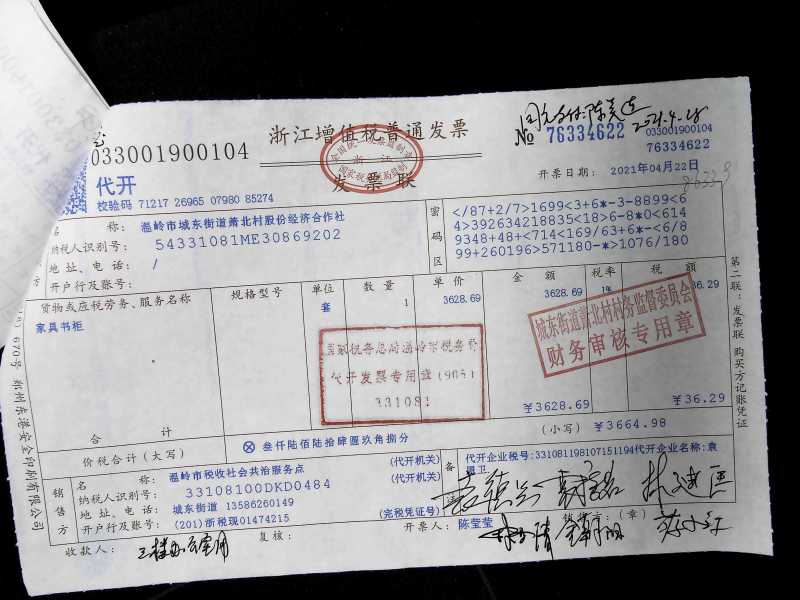 033001900104
浙江增值税普通发票
发票联
№ 76334622
033001900104
76334622
代开
校验码 71217 26965 07980 85274
开票日期: 2021年04月22日
名 称: 温岭市城东街道萧北村股份经济合作社
纳税人识别号: 54331081ME30869202
地址、电话: /
开户行及账号:
密码区
</87+2/7>1699<3+6*-3-8899<6
4>392634218835<18>6-8*0<614
9348+48+<714<169/63+6*-<6/8
99+260196>571180-*>1076/180
货物或应税劳务、服务名称 规格型号 单位 数量 单价 金额 税率 税额
家具书柜 套 1 3628.69 3628.69 1% 36.29
城东街道萧北村村务监督委员会
财务审核专用章
代开发票专用章(905)
331081
合 计 ¥3628.69 ¥36.29
价税合计(大写) ⊗ 叁仟陆佰陆拾肆圆玖角捌分 (小写) ¥3664.98
销售方
名 称: 温岭市税收社会共治服务点 (代开机关)
纳税人识别号: 33108100DKD0484 (代开机关)
地址、电话: 城东街道 13586260149
开户行及账号: (201)浙税现01474215 (完税凭证号)
备注
代开企业税号:331081198107151194代开企业名称:袁
卫
收款人: 复核: 开票人: 陈莹莹 (章)
第二联:发票联 购买方记账凭证
670号 郑州东港安全印刷有限公司